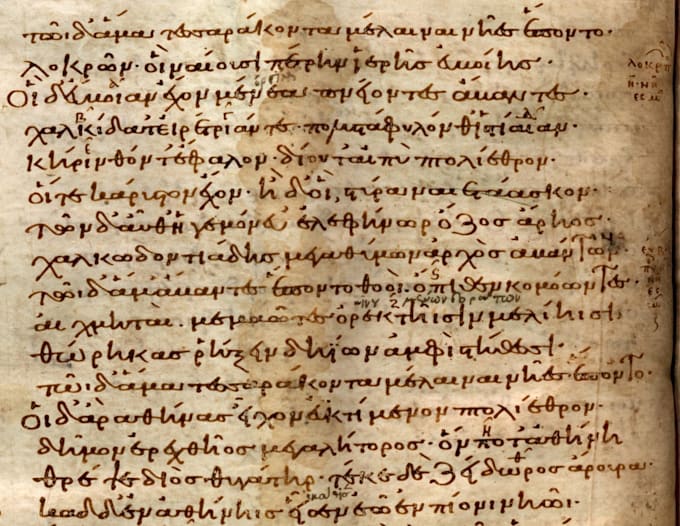 τῶι δ' ἅμα τεσσαράκοντα μέλαιναι νῆες ἕποντο·
λοκρῶν· οἳ ναίουσι πέρην ἱερῆς εὐβοίης·
Οἳ δ' εὔβοιαν ἔχον μένεα πνείοντες ἄβαντες·
χαλκίδα τ' εἰρέτριάν τε· πολυστάφυλόν θ' ἱστίαιαν·
κήρινθόν τ' ἔφαλον· δίου τ' αἰπὺ πτολίεθρον·
οἵ τε κάρυστον ἔχον· ἠδ' οἳ στύρα ναιετάασκον·
τῶν δ' αὖθ' ἡγεμόνευ' ἐλεφήνωρ ὄζος ἄρηος·
χαλκωδοντιάδης μεγαθύμων ἀρχὸς ἀβάντων·
τῶι δ' ἅμ' ἄβαντες ἕποντο θοοὶ· ὄπιθεν κομόωντες·
αἰχμηταὶ· μεμαῶτες ὀρεκτῆισιν μελίηισι
θώρηκας ῥήξειν δηΐων ἀμφὶ στήθεσσι·
τῶι δ' ἅμα τεσσαράκοντα μέλαιναι νῆες ἕποντο·
Οἳ δ' ἄρ' ἀθήνας εἶχον ἐϋκτίμενον πτολίεθρον·
δῆμον ἐρεχθῆος μεγαλήτορος· ὅν ποτ' ἀθήνη
θρέψε διὸς θυγάτηρ· τέκε δὲ ζείδωρος ἄρουρα·
καδδ' ἐν ἀθήνηις εἷσεν ἑῶ ἐν πίονι νηῶι·